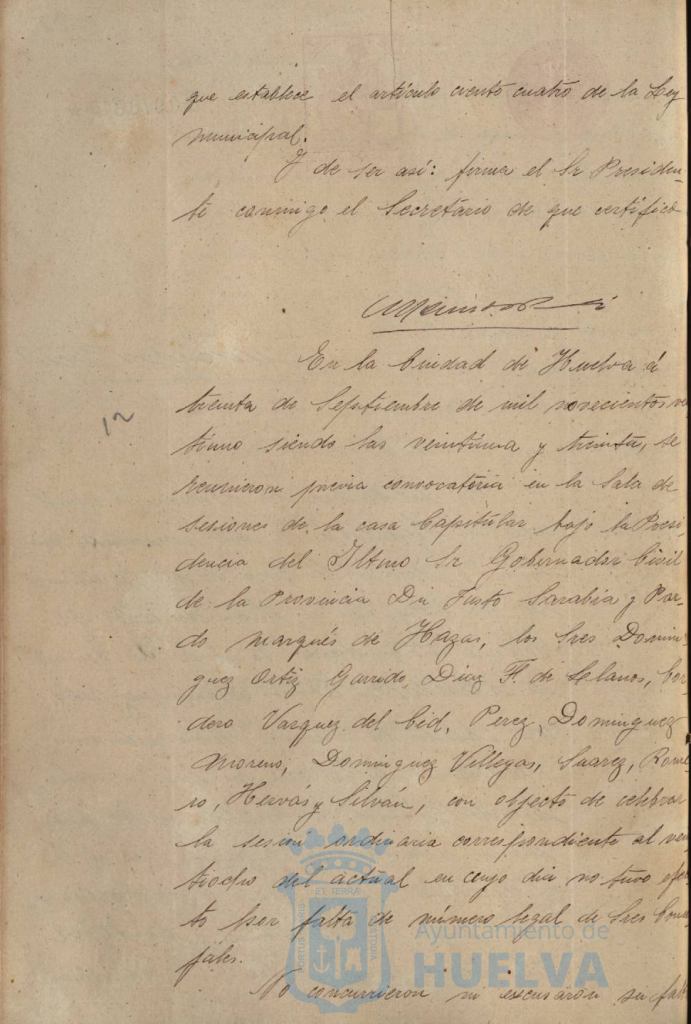 que establece el artículo ciento cuatro de la Ley
municipal.
Y de ser así: firma el Sr Presiden-
te conmigo el Secretario de que certifico
En la Ciudad de Huelva á
treinta de Septiembre de mil novecientos ve
tiuno siendo las veintiuna y treinta, se
reunieron previa convocatoria en la Sala de
sesiones de la casa Capitular bajo la Presi
dencia del Iltmo Sr Gobernador Civil
de la Provincia Dn Justo Sarabia y Par-
do Marqués de Hazas, los Sres Domin
guez Ortiz Garrido, Diaz F. de Llanos, Cor
dero Vazquez del Cid, Perez, Dominguez
Moreno, Dominguez Villegas, Suarez, Rome
ro, Hervás y Silván, con objecto de celebrar
la sesion ordinaria correspondiente al vein
tiocho del actual en cuyo dia no tuvo efec
to por falta de número legal de Sres Conce
jales.
No concurrieron ni excusaron su falt
12
Ayuntamiento de
HUELVA